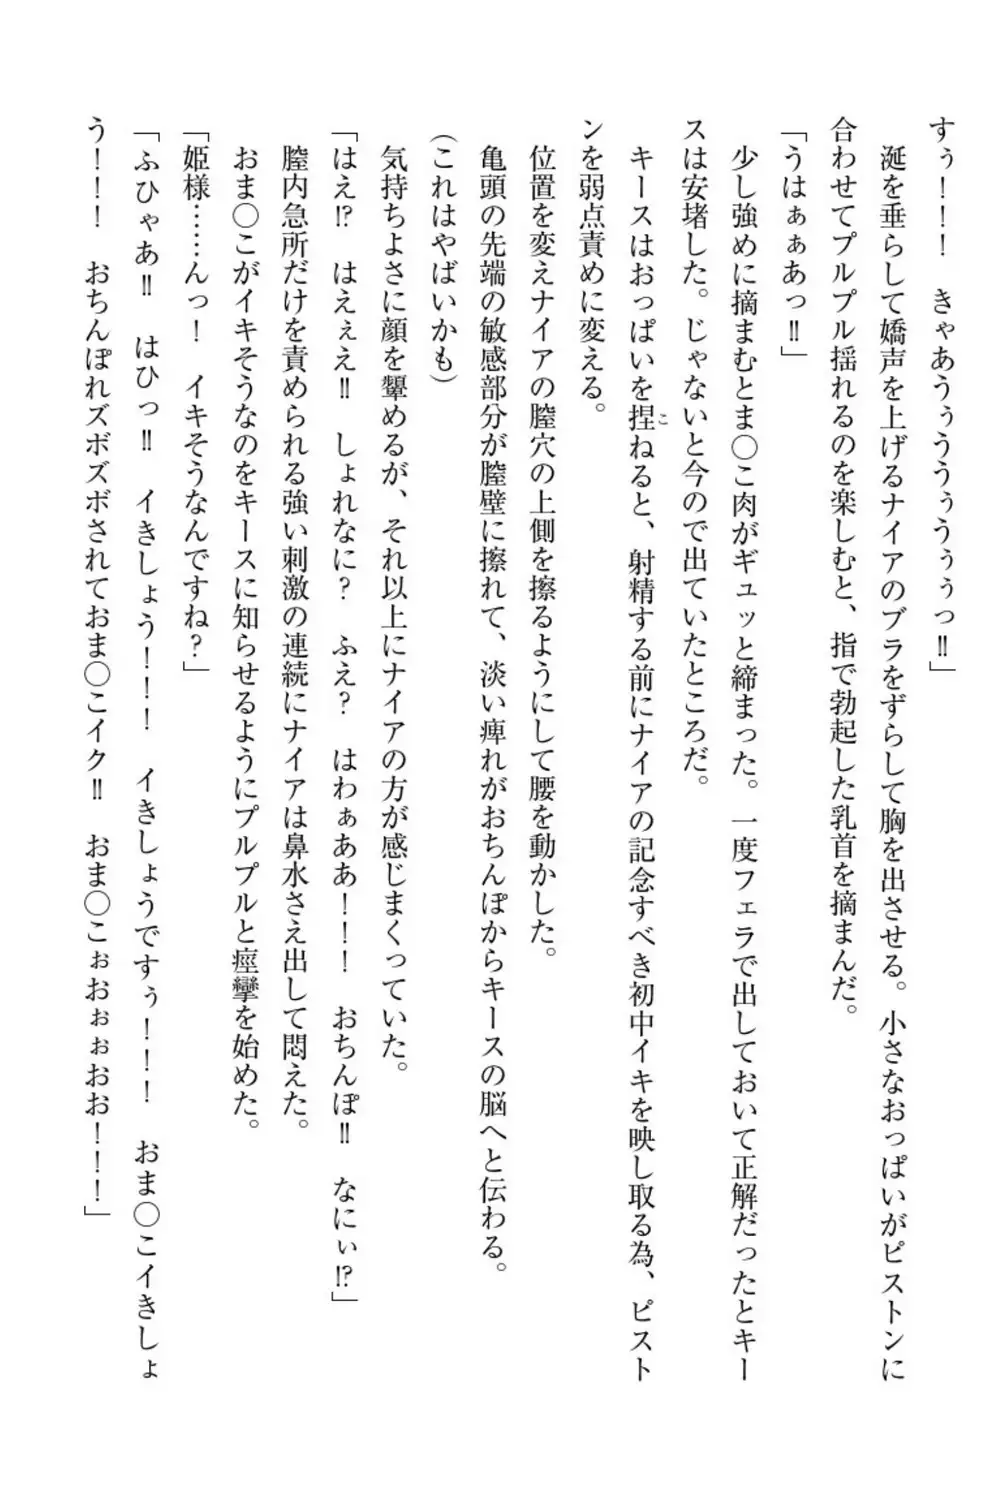 すぅ！！！　きゃあうぅううぅうぅぅっ‼」
　涎を垂らして嬌声を上げるナイアのブラをずらして胸を出させる。小さなおっぱいがピストンに
合わせてプルプル揺れるのを楽しむと、指で勃起した乳首を摘まんだ。
「うはぁぁあっ‼」
　少し強めに摘まむとま〇こ肉がギュッと締まった。一度フェラで出しておいて正解だったとキー
スは安堵した。じゃないと今ので出ていたところだ。
　キースはおっぱいを捏こねると、射精する前にナイアの記念すべき初中イキを映し取る為、ピスト
ンを弱点責めに変える。
　位置を変えナイアの膣穴の上側を擦るようにして腰を動かした。
　亀頭の先端の敏感部分が膣壁に擦れて、淡い痺れがおちんぽからキースの脳へと伝わる。
（これはやばいかも）
　気持ちよさに顔を顰めるが、それ以上にナイアの方が感じまくっていた。
「はえ⁉　はえぇえ‼　しょれなに？　ふえ？　はわぁああ！！！　おちんぽ‼　なにぃ⁉」
　膣内急所だけを責められる強い刺激の連続にナイアは鼻水さえ出して悶えた。
　おま〇こがイキそうなのをキースに知らせるようにプルプルと痙攣を始めた。
「姫様……んっ！　イキそうなんですね？」
「ふひゃあ‼　はひっ‼　イきしょう！！！　イきしょうですぅ！！！　おま〇こイきしょ
う！！！　おちんぽれズボズボされておま〇こイク‼　おま〇こぉおぉぉおお！！！」